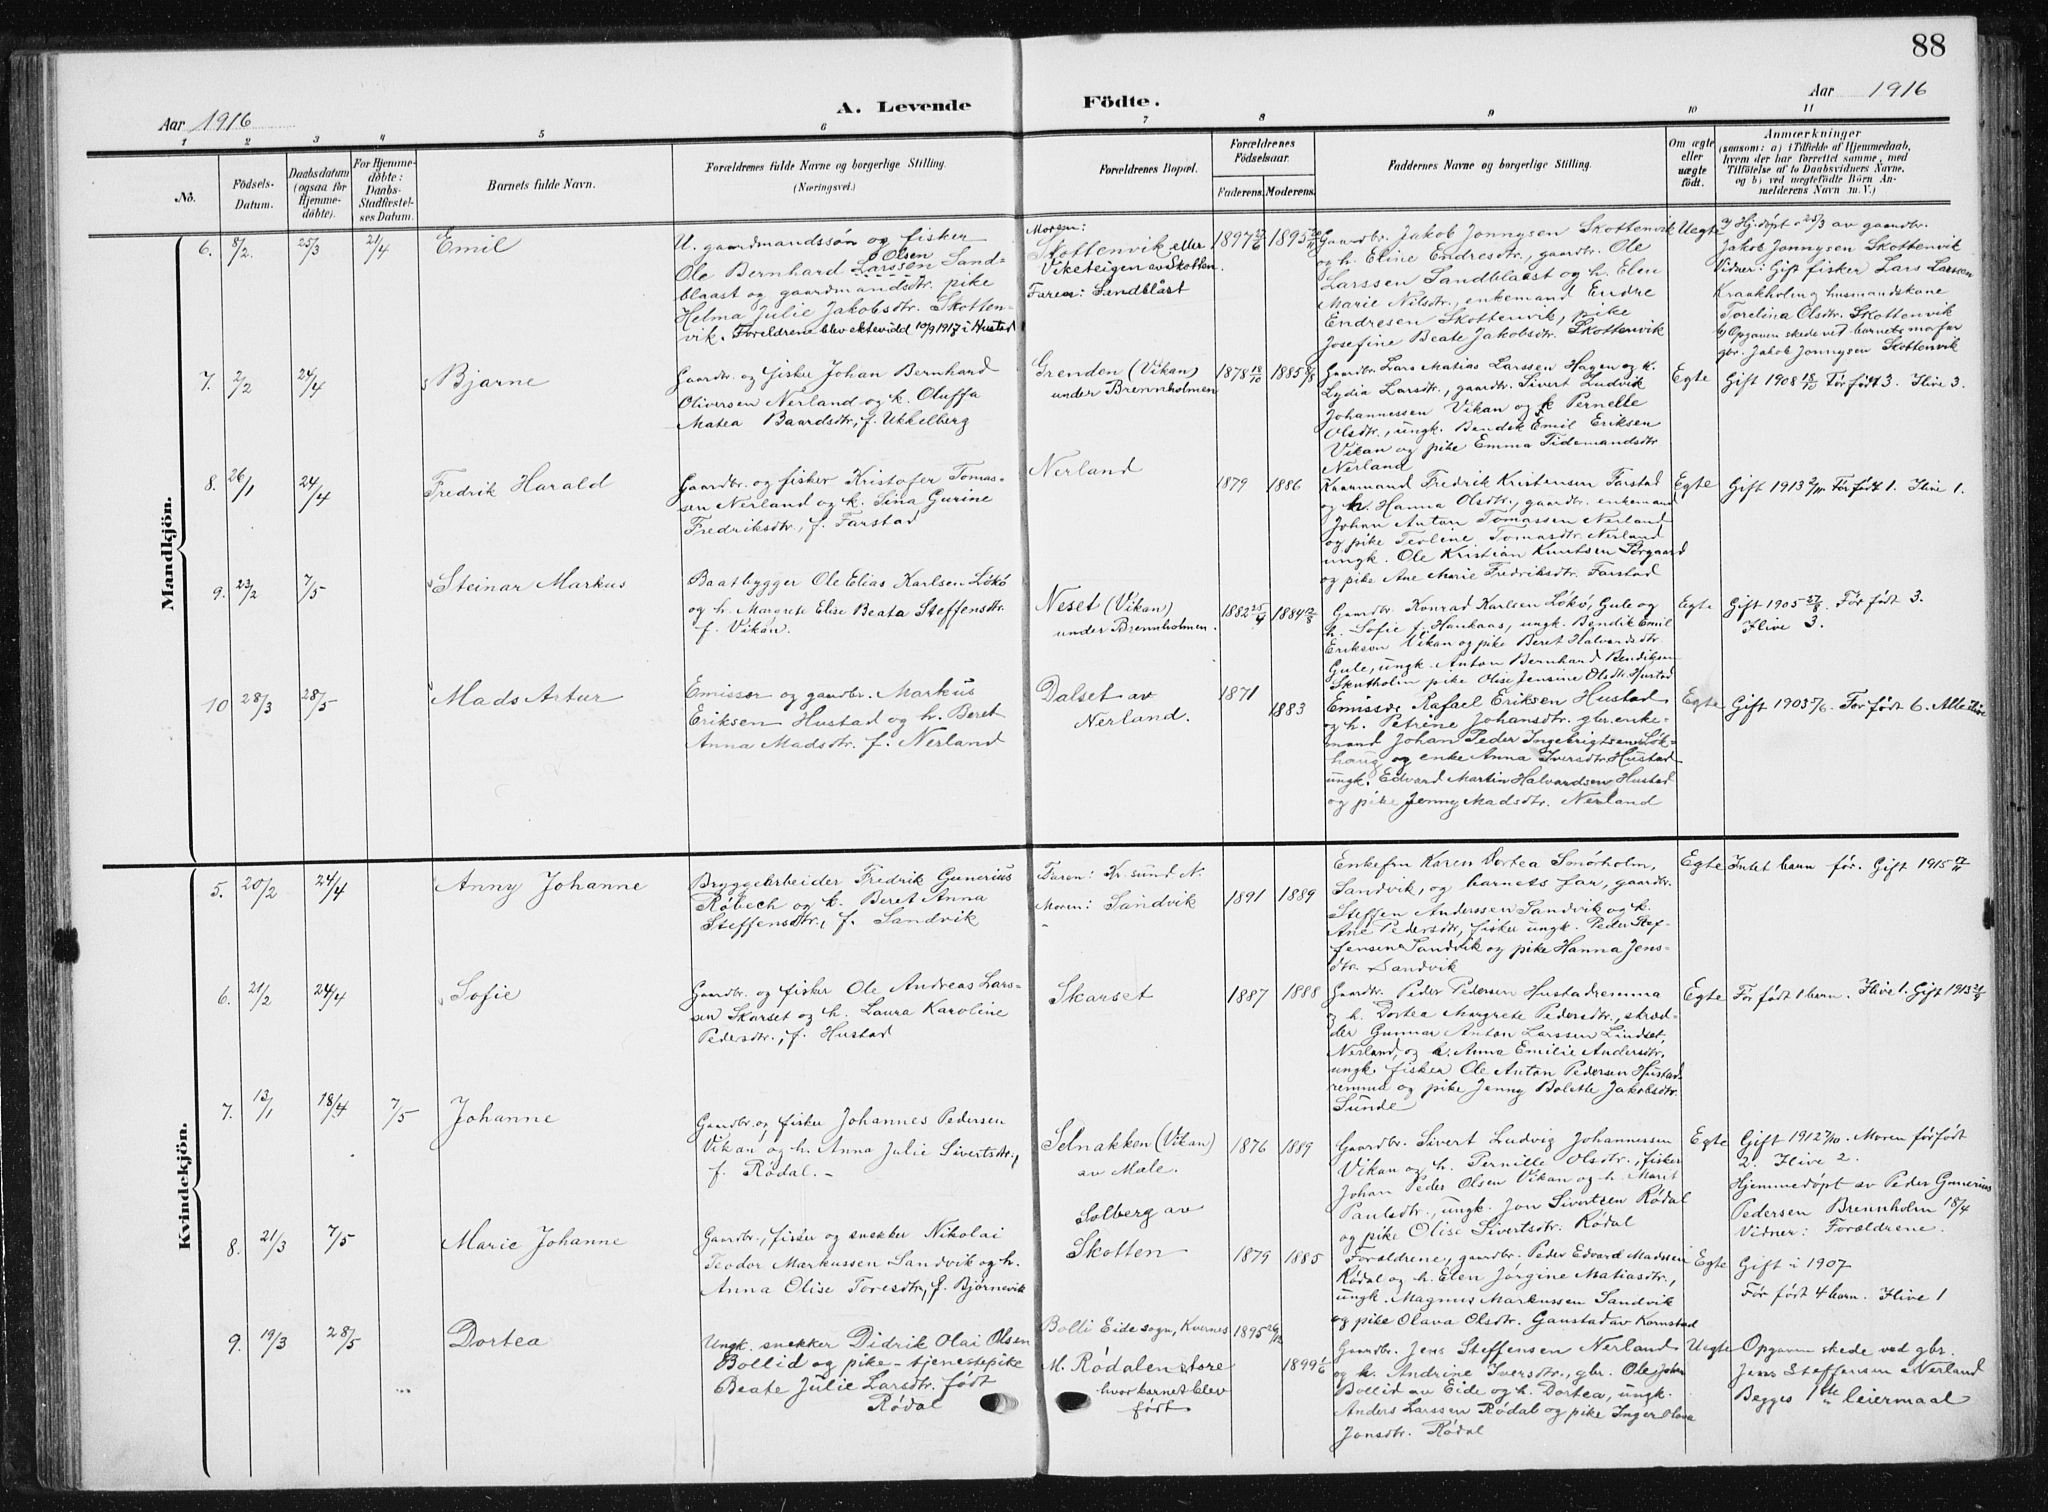 88
A. Levende Födte.
Aar 1916
Aar 1916
1 2 3 4 5 6 7 8 9 10 11
No.
Födsels-
Datum.
Daabsdatum
(ogsaa for
Hjemme-
døbte).
For Hjemme-
døbte:
Daabs-
Stadfæstel-
ses Datum.
Barnets fulde Navn.
Forældrenes fulde Navne og borgerlige Stilling.
(Næringsvei.)
Forældrenes Bopæl.
Forældrenes
Födselsaar.
Faderens. Moderens.
Faddernes Navne og borgerlige Stilling.
Om ægte
eller
uægte
født.
Anmærkninger
(saasom: a) i Tilfælde af Hjemmedaab,
hvem der har forrettet samme, med
Tilföielse af to Daabsvidners Navne,
og b) ved uægtefödte Börn An-
melderens Navn m. V.)
Mandkjön.
6. 8/2. 25/3 21/4 Emil
U. gaardmandssøn og fisker
Olsen
Ole Bernhard Larssen Sand-
blaast og gaardmandsdtr. pike
Helma Julie Jakobsdtr. Skotten-
vik. Foreldrene blev ektevidd 10/9 1917 i Hustad
Moren:
Skottenvik eller
Viketeigen av Skotten.
Faren: Sandblåst
1897 1893
Gaardbr. Jakob Jonnysen Skottenvik
og h. Eline Endresdtr., gaardbr. Ole
Larssen Sandblaast og h. Elen
Marie Nilsdtr., enkemand Endre
Endresen Skottenvik, pike
Josefine Beate Jakobsdtr. Skottenvik
Uegte
a) Hj.døpt 25/3 av gaardbr.
Jakob Jonnysen Skottenvik
Vidner: Gift fisker Lars Larssen
Kraakholm og husmandskone
Torelina Olsdtr. Skottenvik
b) Opgaven skede ved barnets morfar
gbr. Jakob Jonnysen Skottenvik
7. 2/2 24/4 Bjarne
Gaardbr. og fisker Johan Bernhard
Oliversen Nerland og h. Oluffa
Matea Baardsdtr., f. Ukkelberg
Grenden (Vikan)
under Brennholmen
1878 18/10 1885
Gaardbr. Lars Matias Larssen Hagen og h.
Lydia Larsdtr., gaardbr. Sivert Ludvik
Johannessen Vikan og h Pernelle
Olsdtr., ungk. Bendik Emil Eriksen
Vikan og pike Emma Tidemandsdtr
Nerland
Egte
Gift 1908 18/10 Før født 3. Ilive 3.
8. 26/1 24/4 Fredrik Harald
Gaardbr. og fisker Kristofer Tomas-
sen Nerland og h. Sina Gurine
Fredriksdtr., f. Farstad
Nerland
1879 1886
Kaarmand Fredrik Kristensen Farstad
og h. Hanna Olsdtr., gaardbr. enkemand
Johan Anton Tomassen Nerland
og pike Teoline Tomasdtr. Nerland
ungk. Ole Kristian Knutsen Sørgaard
og pike Ane Marie Fredriksdtr. Farstad
Egte
Gift 1913 2/11 Før født 1. Ilive 1.
9. 23/2 7/5 Steinar Markus
Baatbygger Ole Elias Karlsen Løkø
og h. Margrete Elise Beata Steffensdtr.
f. Vikan.
Neset (Vikan)
under Brennholmen.
1882 1884 12/8
Gaardbr. Konrad Karlsen Løkø, Gule og
h. Sofie f. Haukaas, ungk. Bendik Emil
Eriksen Vikan og pike Beret Halvardsdtr.
Gule, ungk. Anton Bernhard Bendiksen
Skutholm pike Olise Jensine Olsdtr. Hustad
Egte
Gift 1905 27/8. Før født 3.
Ilive 3.
10 28/3 28/5 Mads Artur
Emissær og gaardbr. Markus
Eriksen Hustad og h. Beret
Anna Madsdtr. f. Nerland
Dalset av
Nerland.
1871 1883
Emissær Rafael Eriksen Hustad
og h. Petrine Johansdtr. gbr. enke-
mand Johan Peder Ingebrigtsen Løk-
haug og enke Anna Iversdtr Hustad
ungk. Edvard Martin Halvardsen Hustad
og pike Jenny Madsdtr. Nerland
Egte
Gift 1903 7/6. Før født 6. Alle Ilive
Kvindekjön.
5. 20/2 24/4 Anny Johanne
Bryggearbeider Fredrik Gunerius
Røbech og h. Beret Anna
Steffensdtr., f. Sandvik
Faren: Kr.sund N.
Moren: Sandvik
1891 1889
Enkefru Karen Dortea Smørholm,
Sandvik, og barnets far, gaardbr.
Steffen Anderssen Sandvik og h.
Ane Pedersdtr, fisker ungk. Peder Stef-
fensen Sandvik og pike Hanna Jens-
dtr. Sandvik
Egte
Intet barn før. Gift 1915
6. 21/2 24/4 Sofie
Gaardbr. og fisker Ole Andreas Lars-
sen Skarset og h. Laura Karoline
Pedersdtr., f. Hustad
Skarset
1887 1888
Gaardbr. Peder Pedersen Hustadremma
og h. Dortea Margrete Pedersdtr., stræd-
der Gunnar Anton Larssen Lindset,
Nerland, og h. Anna Emilie Andersdtr,
ungk. fisker Ole Anton Pedersen Hustad-
remma og pike Jenny Bolette Jakobsdtr.
Sunde
Egte
Før født 1 barn. Ilive 1. Gift 1913
7. 13/1 18/4 7/5 Johanne
Gaardbr. og fisker Johannes Pedersen
Vikan og h. Anna Julie Sivertsdtr.,
f. Rødal. –
Selnakken (Vikan)
av Mæle.
1876 1889
Gaardbr. Sivert Ludvig Johannessen
Vikan og h. Pernille Olsdtr., fisker
Johan Peder Olsen Vikan og h. Marit
Paulsdtr., ungk. Jon Sivertsen Rødal
og pike Olise Sivertsdtr. Rødal
Egte
Gift 1912 7/10. Moren før født
2. Ilive 2.
Hjemmedøpt av Peder Gunerius
Pedersen Brennholm 18/4
Vidner: Forældrene.
8. 21/3 7/5 Marie Johanne
Gaardbr., fisker og snekker Nikolai
Teodor Markussen Sandvik og h.
Anna Olise Toresdtr, f. Bjørnevik
Solberg av
Skotten
1879 1885
Forældrene, gaardbr. Peder Edvard Madssen
Rødal og h. Elen Jørgine Matiasdtr.,
ungk. Magnus Markussen Sandvik
og pike Olava Olsdtr. Gaustad av Kornstad
Egte
Gift i 1907
Før født 4 barn. Ilive 1
9. 19/3 28/5 Dortea
Ungk. snekker Didrik Olai Olsen
Bollid og pike – tjenestepike
Beate Julie Larsdtr. født
Rødal
Bolli Eide sogn, Kvernes
M. Rødalen store
hvor barnet blev
født
1895 1899 1/6
Gaardbr. Jens Steffensen Nerland
og h. Andrine Iversdtr., gbr. Ole Johan
Bollid av Eide og h. Dortea, ungk.
Anders Larssen Rødal og pike Inger Olava
Jonsdtr. Rødal
Uegte
Opgaven skede ved gbr.
Jens Steffensen Nerland
Begges 1ste leiermaal